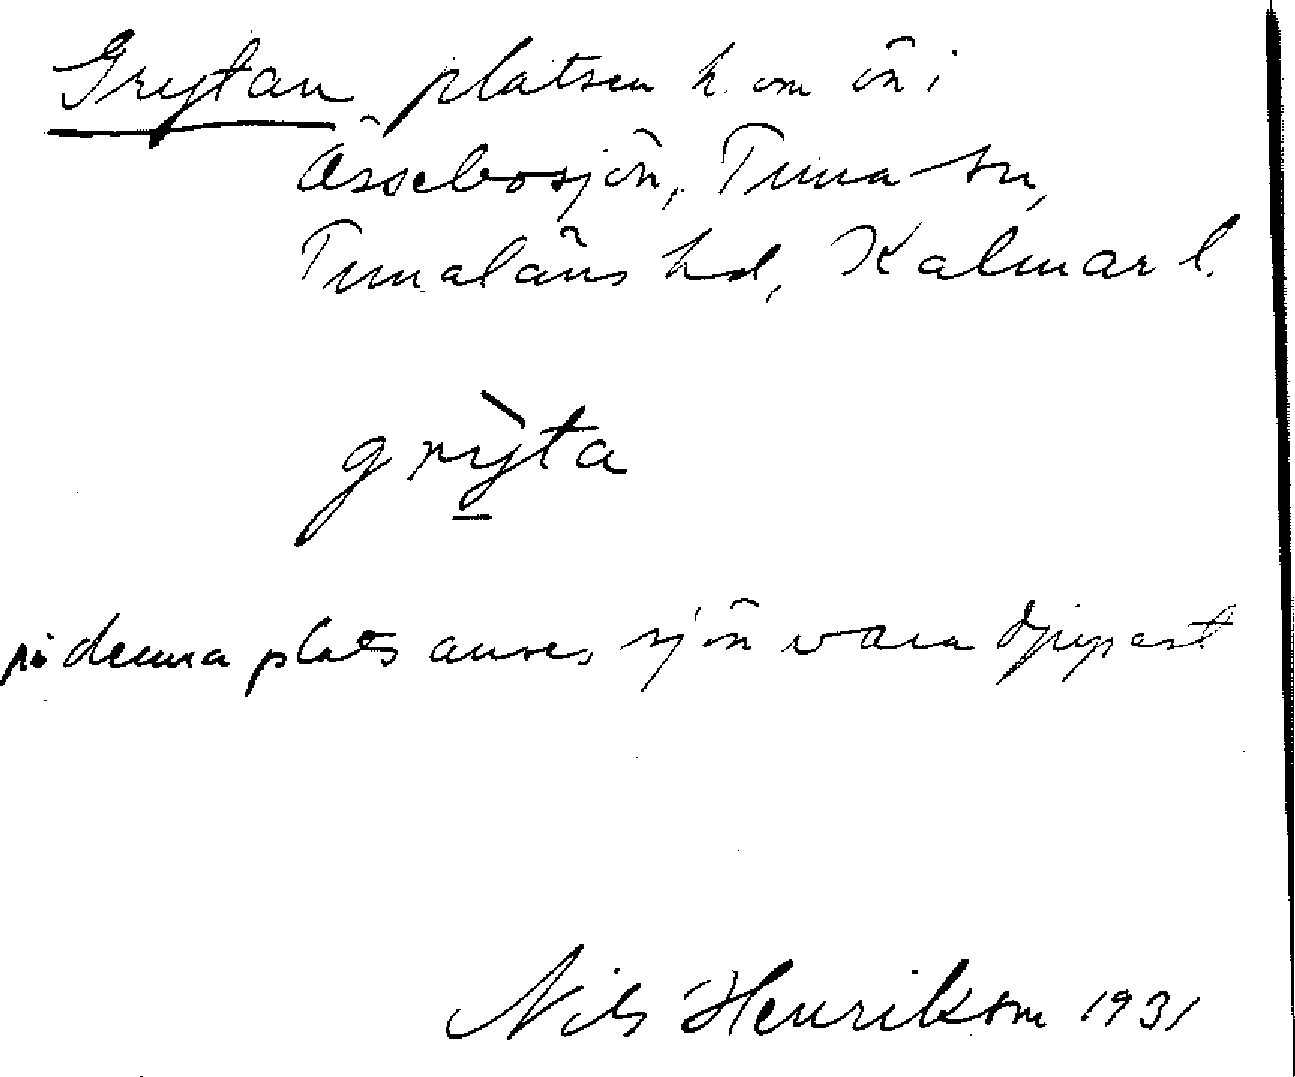 Grytan platsen k. om ön i
Ässebosjön, Tuna sn,
Tunaläns hd, Kalmar l.
grỳta
på denna plats anses sjön vara djupast
Nils Henrikson 1931